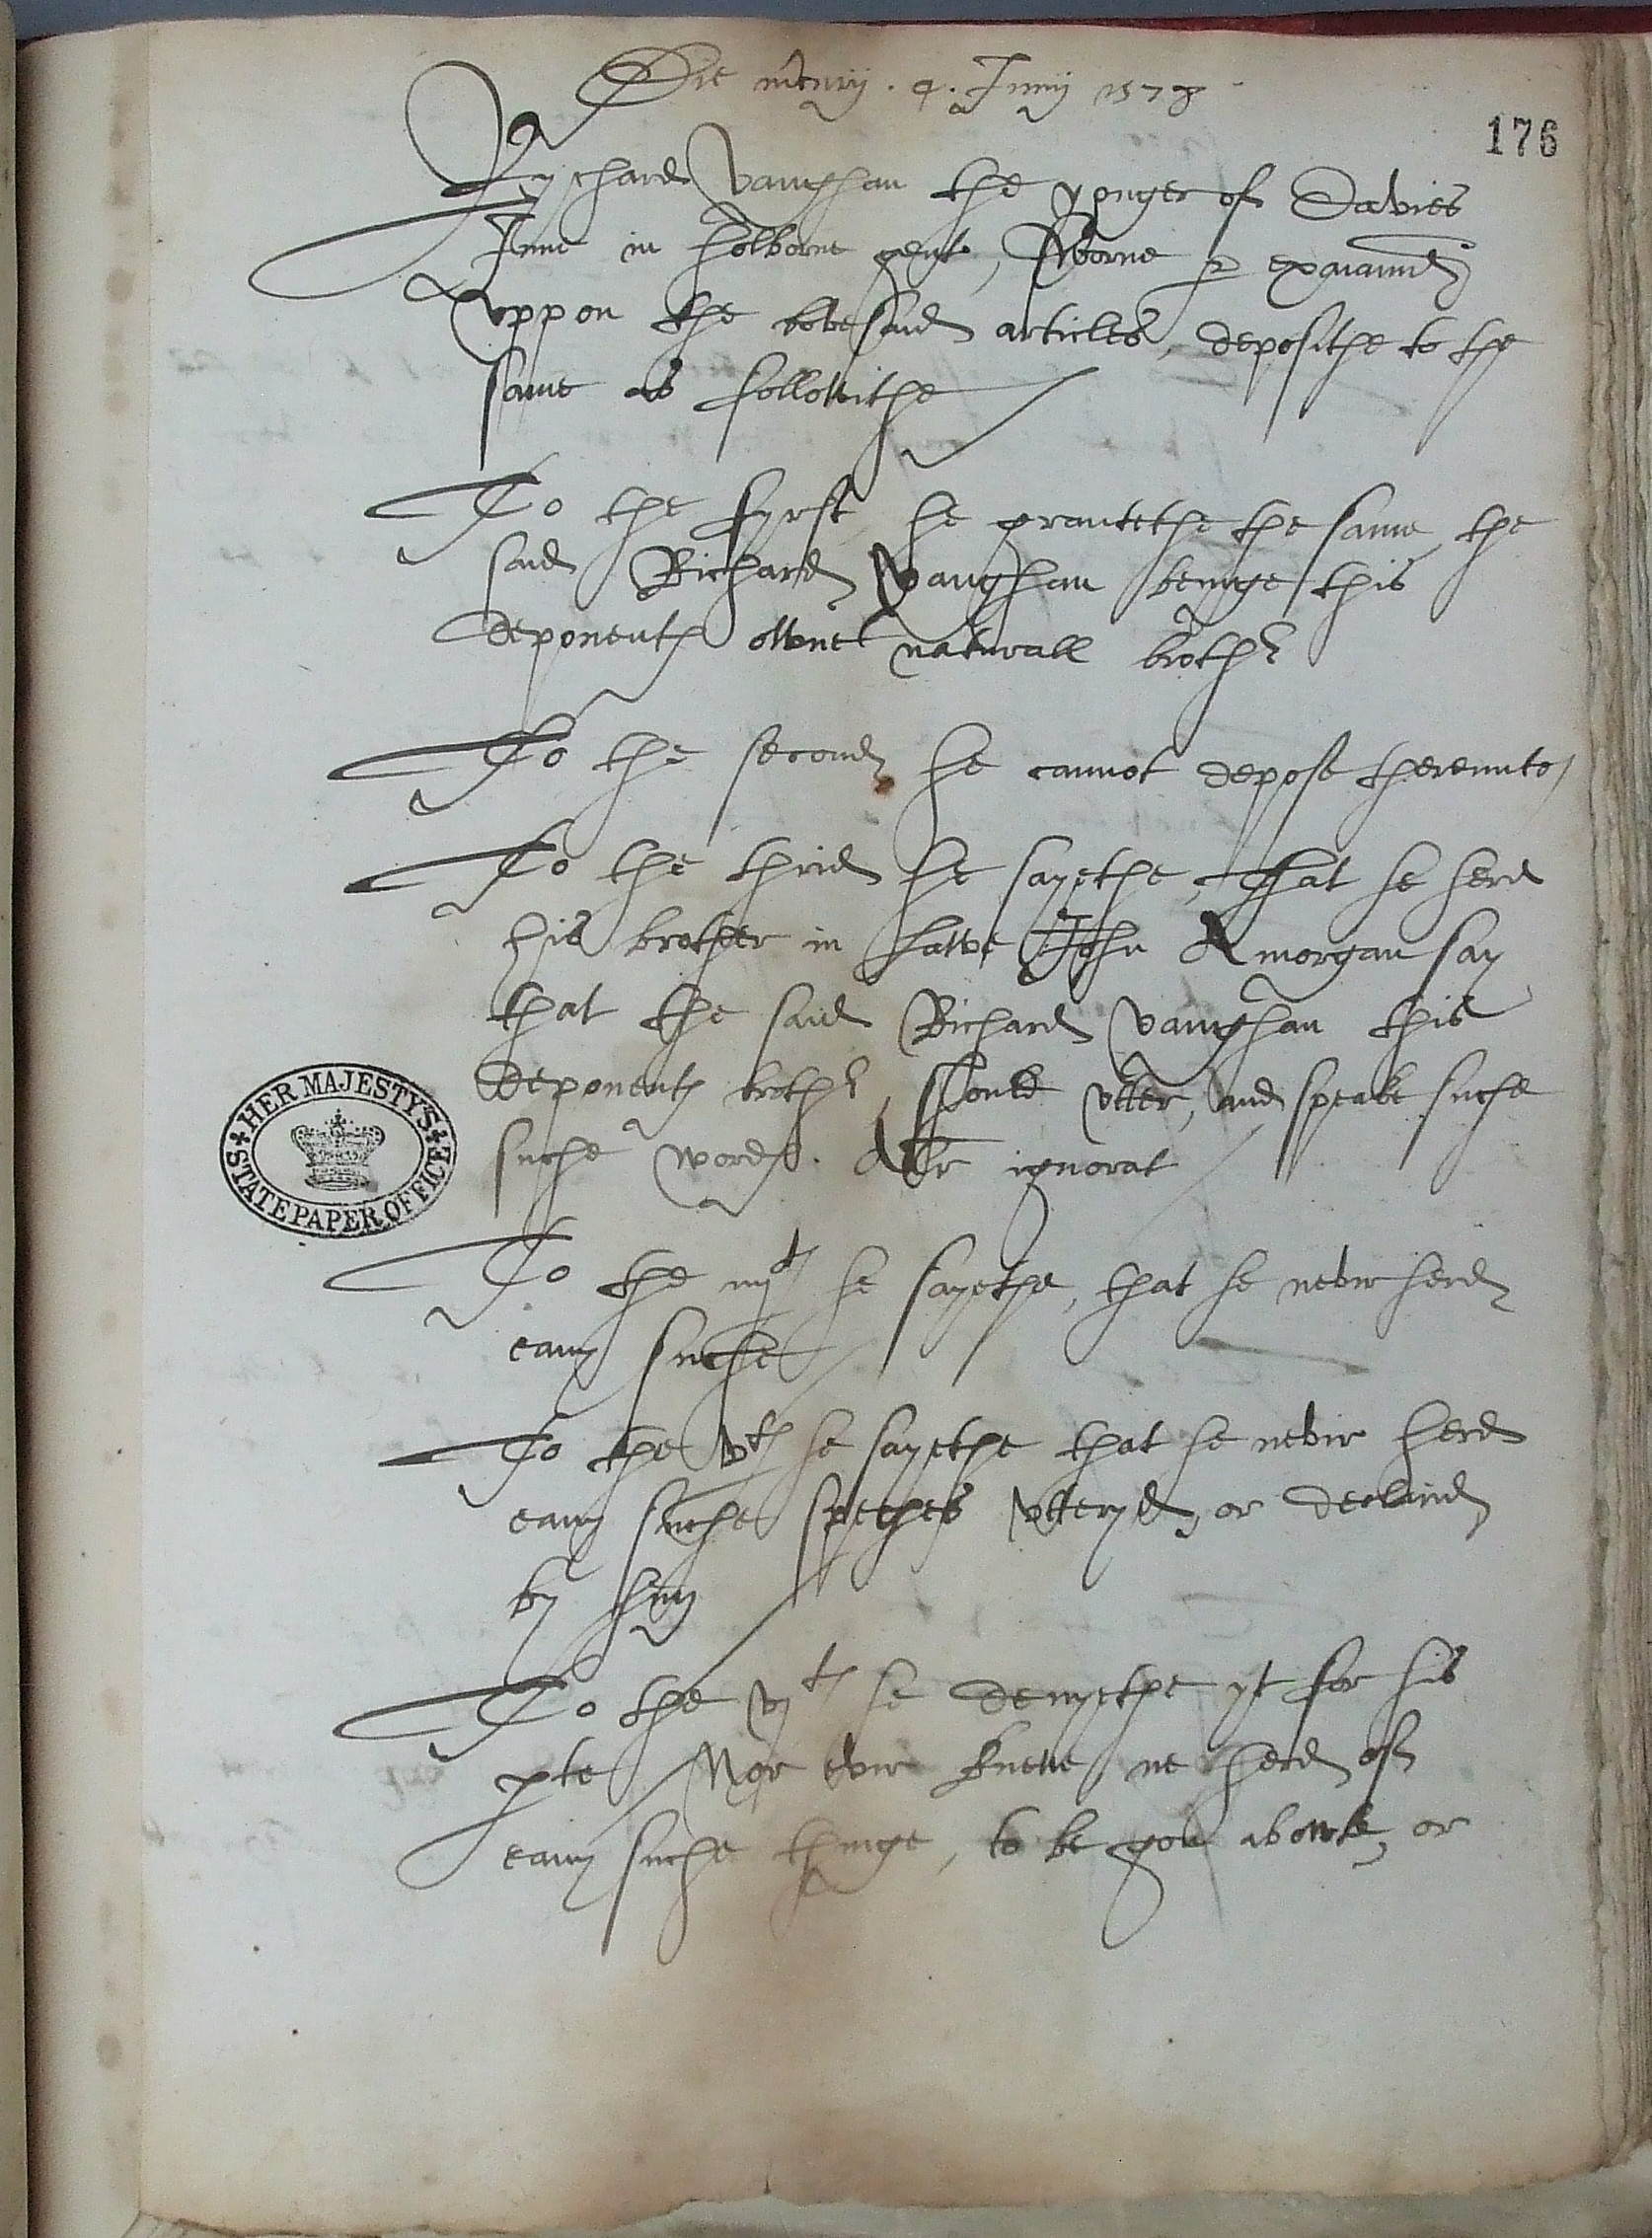 Die mercurij . 4 . Junij 1578
176
Rychard Vaughan the yonger of Davies
Inne in holborne gent, Sworne & examined
vppon the bovesaid articles, deposithe to the
same as followithe
To the fyrst he grantethe the same, the
said Richard Vaughan beinge this
deponents owne naturall brother
To the second he cannot depose thereunto
To the thrid he sayethe, That he herd
his brother in Lawe John Amorgan say
that the said Richard Vaughan this
deponents brother, should vtter, and speake suche
suche words. Aliter ignorat
To the iiijth he sayethe, that he nevir herd
eany suche
To the vth he sayethe that he nevir herd
eany suche speches vtteryd, or declarid
by hym
To the vjth he denyethe yt for his
pte Nor evir knewe ne herd of
eany suche thinge, to be gon abowte, or
HER MAJESTY'S
STATE PAPER OFFICE